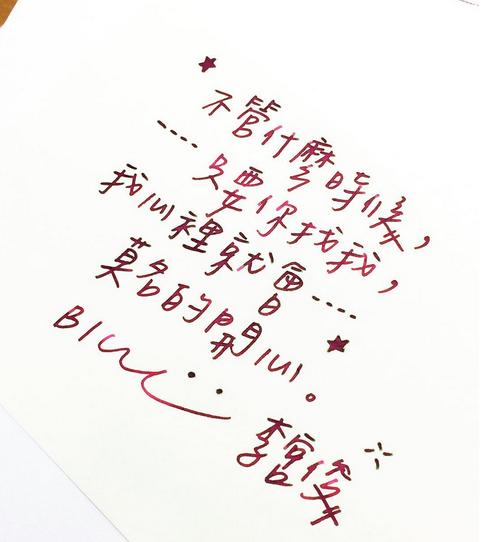 不管什麼時候，
....只要你找我，
我心裡就會....
莫名的開心。
Blu